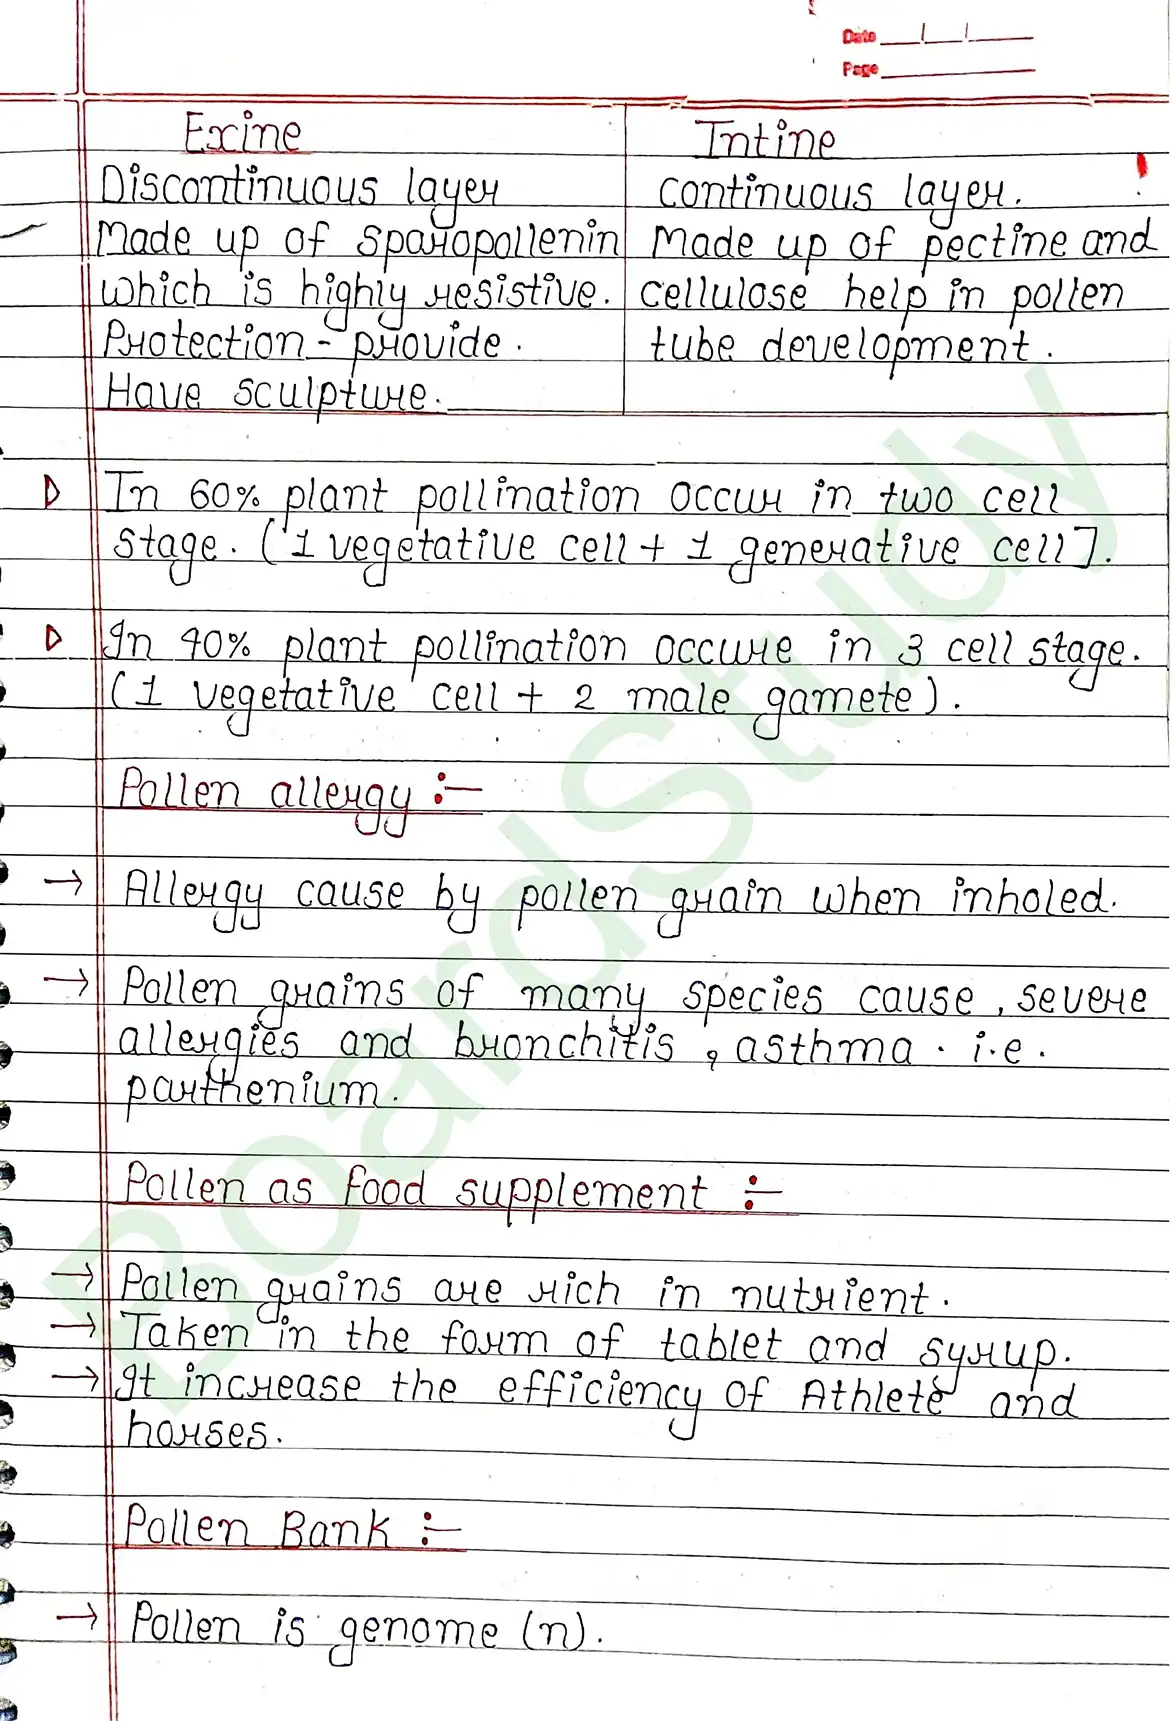 Date
Page
Exine
Intine
Discontinuous layer
continuous layer.
Made up of sparopollenin
Made up of pectine and
which is highly resistive.
cellulose help in pollen
Protection - provide.
tube development.
Have sculpture.
In 60% plant pollination occur in two cell
stage. (1 vegetative cell + 1 generative cell].
In 40% plant pollination occure in 3 cell stage.
(1 vegetative cell + 2 male gamete).
Pollen allergy :-
→ Allergy cause by pollen grain when inholed.
→ Pollen grains of many species cause, severe
allergies and bronchitis, asthma. i.e.
parthenium.
Pollen as food supplement :-
→ Pollen grains are rich in nutrient.
→ Taken in the form of tablet and syrup.
→ It increase the efficiency of Athlete and
horses.
Pollen Bank :-
→ Pollen is genome (n).
BoardStudy